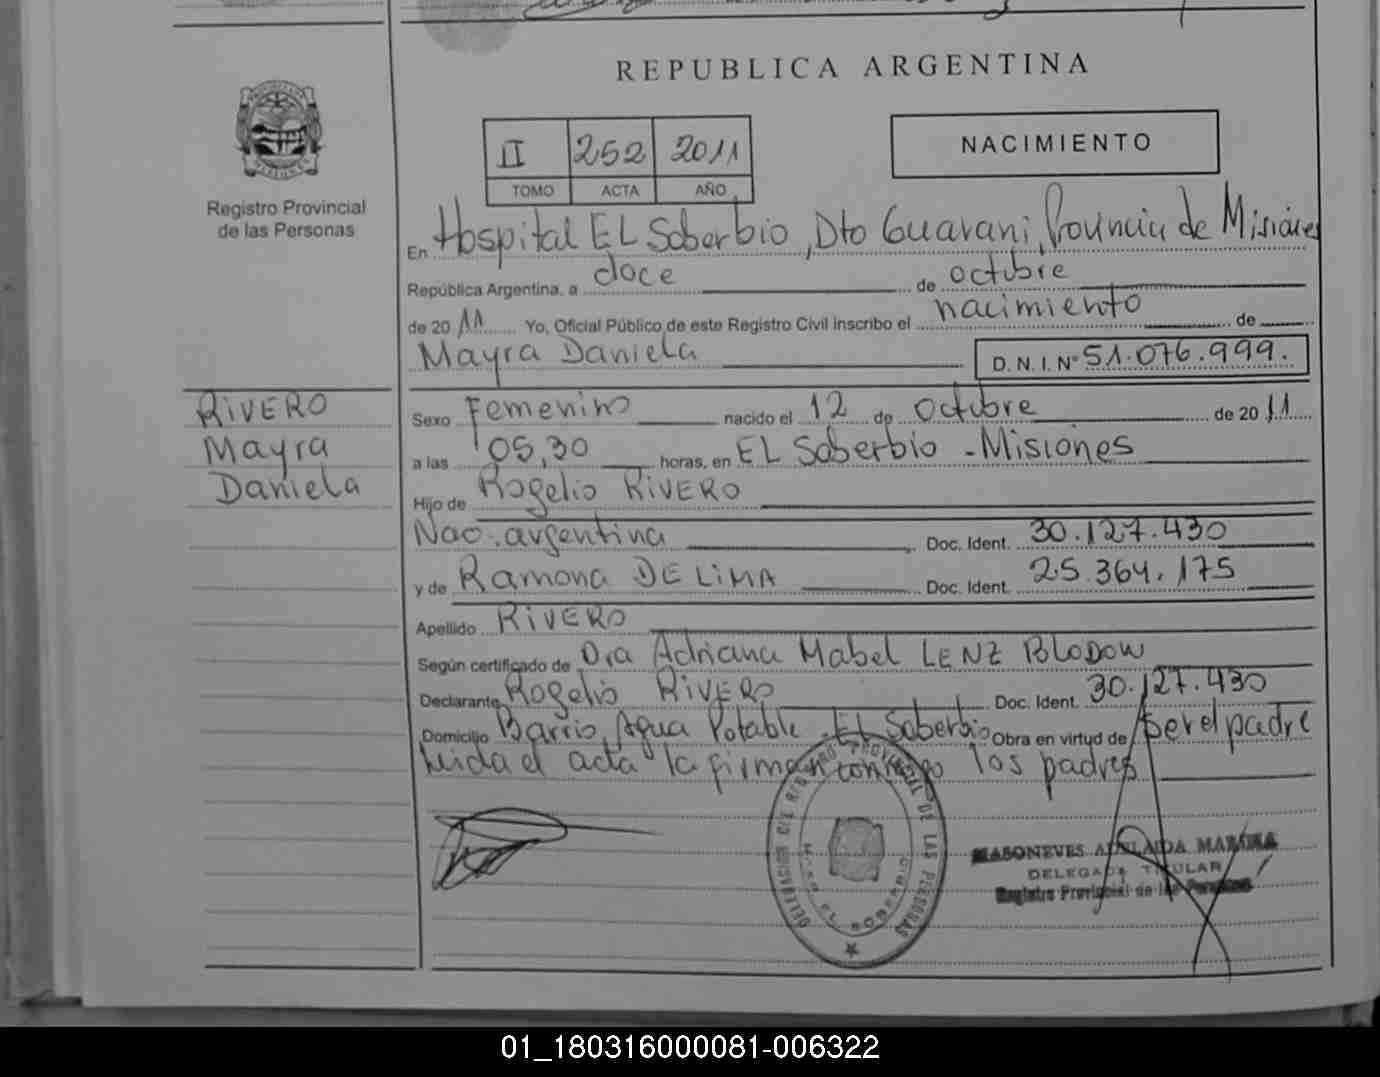 REPUBLICA ARGENTINA
II 252 2011
TOMO ACTA AÑO
NACIMIENTO
Registro Provincial
de las Personas
En Hospital EL Soberbio, Dto Guarani, Provincia de Misiones
República Argentina, a doce de octubre
de 20 11 Yo, Oficial Público de este Registro Civil inscribo el nacimiento de
Mayra Daniela D. N. I. N° 51.076.999.
RIVERO
Mayra
Daniela
Sexo Femenino nacido el 12 de Octubre de 20 11
a las 05,30 horas, en EL Soberbio - Misiones
Hijo de Rogelio RIVERO
Nac. argentina Doc. Ident. 30.127.430
y de Ramona DE LIMA Doc. Ident. 25.364.175
Apellido RIVERO
Según certificado de Dra Adriana Mabel LENZ BLODOW
Declarante Rogelio RIVERO Doc. Ident. 30.127.430
Domicilio Barrio Agua Potable - EL Soberbio Obra en virtud de ser el padre
Leida el acta la firman conmigo los padres
DELEGACION DEL REGISTRO PROVINCIAL DE LAS PERSONAS
EL SOBERBIO
MARINA
DELEGADA TITULAR
Registro Provincial de las Personas
01_180316000081-006322